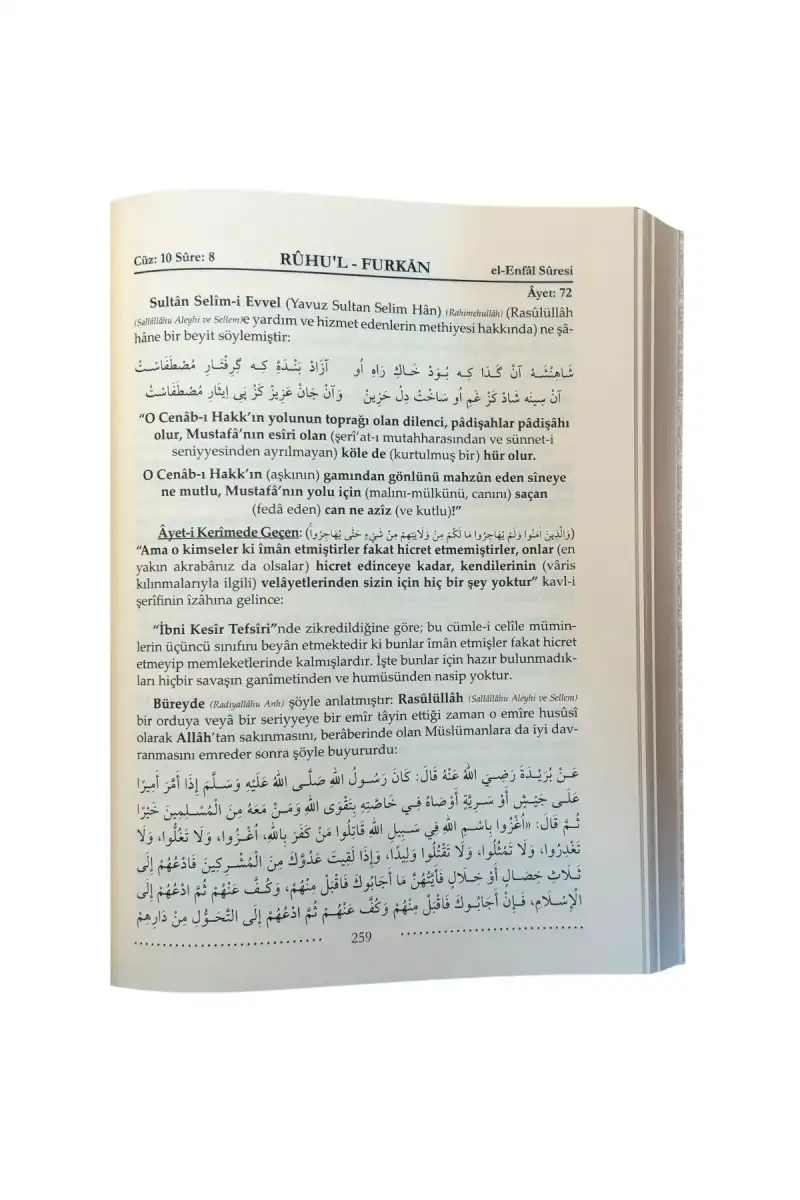 Cüz: 10 Sûre: 8 RÛHU'L - FURKĀN el-Enfâl Sûresi
Âyet: 72
Sultân Selîm-i Evvel (Yavuz Sultan Selim Hân) (Rahimehullâh) (Rasûlüllâh
(Sallâllâhu Aleyhi ve Sellem)e yardım ve hizmet edenlerin methiyesi hakkında) ne şâ-
hâne bir beyit söylemiştir:
شَاهِنْشَهْ آنْ گَدَا كِه بُوَدْ خَاكِ رَاهِ اُو آزَادْ بَنْدَهٔ كِه گِرِفْتَارِ مُصْطَفَاسْتْ
آنْ سِينَه شَادْ كَزْ غَمِ اُو سَاخْتْ دِلْ حَزِينْ وَآنْ جَانْ عَزِيزْ كَزْ پَىِ اِيثَارِ مُصْطَفَاسْتْ
“O Cenâb-ı Hakk’ın yolunun toprağı olan dilenci, pâdişahlar pâdişâhı
olur, Mustafâ’nın esîri olan (şerî’at-ı mutahharasından ve sünnet-i
seniyyesinden ayrılmayan) köle de (kurtulmuş bir) hür olur.
O Cenâb-ı Hakk’ın (aşkının) gamından gönlünü mahzûn eden sîneye
ne mutlu, Mustafâ’nın yolu için (malını-mülkünü, canını) saçan
(fedâ eden) can ne azîz (ve kutlu)!”
Âyet-i Kerîmede Geçen: (وَالَّذِينَ اٰمَنُوا وَلَمْ يُهَاجِرُوا مَا لَكُمْ مِنْ وَلَايَتِهِمْ مِنْ شَيْءٍ حَتّٰى يُهَاجِرُوا)
“Ama o kimseler ki îmân etmiştirler fakat hicret etmemiştirler, onlar (en
yakın akrabânız da olsalar) hicret edinceye kadar, kendilerinin (vâris
kılınmalarıyla ilgili) velâyetlerinden sizin için hiç bir şey yoktur” kavl-i
şerîfinin îzâhına gelince:
“İbni Kesîr Tefsîri”nde zikredildiğine göre; bu cümle-i celîle mümin-
lerin üçüncü sınıfını beyân etmektedir ki bunlar îmân etmişler fakat hicret
etmeyip memleketlerinde kalmışlardır. İşte bunlar için hazır bulunmadık-
ları hiçbir savaşın ganîmetinden ve humüsünden nasip yoktur.
Büreyde (Radıyallâhu Anh) şöyle anlatmıştır: Rasûlüllâh (Sallâllâhu Aleyhi ve Sellem)
bir orduya veyâ bir seriyyeye bir emîr tâyin ettiği zaman o emîre husûsî
olarak Allâh’tan sakınmasını, berâberinde olan Müslümanlara da iyi dav-
ranmasını emreder sonra şöyle buyururdu:
عَنْ بُرَيْدَةَ رَضِيَ اللهُ عَنْهُ قَالَ: كَانَ رَسُولُ اللهِ صَلَّى اللهُ عَلَيْهِ وَسَلَّمَ إِذَا أَمَّرَ أَمِيرًا
عَلَى جَيْشٍ أَوْ سَرِيَّةٍ أَوْصَاهُ فِي خَاصَّتِهِ بِتَقْوَى اللهِ وَمَنْ مَعَهُ مِنَ الْمُسْلِمِينَ خَيْرًا
ثُمَّ قَالَ: «اُغْزُوا بِاسْمِ اللهِ فِي سَبِيلِ اللهِ قَاتِلُوا مَنْ كَفَرَ بِاللهِ، اُغْزُوا، وَلَا تَغُلُّوا، وَلَا
تَغْدِرُوا، وَلَا تَمْثُلُوا، وَلَا تَقْتُلُوا وَلِيدًا، وَإِذَا لَقِيتَ عَدُوَّكَ مِنَ الْمُشْرِكِينَ فَادْعُهُمْ إِلَى
ثَلَاثِ خِصَالٍ أَوْ خِلَالٍ فَأَيَّتُهُنَّ مَا أَجَابُوكَ فَاقْبَلْ مِنْهُمْ، وَكُفَّ عَنْهُمْ ثُمَّ ادْعُهُمْ إِلَى
الْإِسْلَامِ، فَإِنْ أَجَابُوكَ فَاقْبَلْ مِنْهُمْ وَكُفَّ عَنْهُمْ ثُمَّ ادْعُهُمْ إِلَى التَّحَوُّلِ مِنْ دَارِهِمْ
259